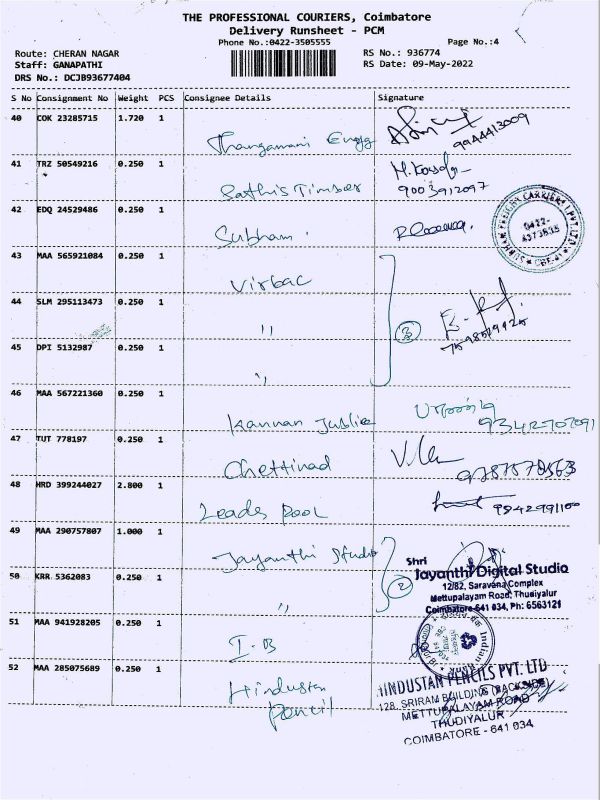 THE PROFESSIONAL COURIERS, Coimbatore
Delivery Runsheet - PCM
Phone No.:0422-3505555
Page No.:4
Route: CHERAN NAGAR
RS No.: 936774
Staff: GANAPATHI
RS Date: 09-May-2022
DRS No.: DCJB93677404
S No Consignment No Weight PCS Consignee Details Signature
40 COK 23285715 1.720 1
Thangamani Engg 9944413009
41 TRZ 50549216 0.250 1
Sathis Timber 9003912097
42 EDQ 24529486 0.250 1
Subham.
SUBHAM FREIGHT CARRIERS I PVT. LTD
0422-
43 MAA 565921084 0.250 1
Virbac
44 SLM 295113473 0.250 1
" 3
45 DPI 5132987 0.250 1
"
46 MAA 567221360 0.250 1
Kannan Jublie
47 TUT 778197 0.250 1
Chettinad 9787578563
48 HRD 399244027 2.800 1
Leades Pool 9842991100
49 MAA 290757807 1.000 1
Jayanthi Studio
Shri
Jayanthi Digital Studio
50 KRR 5362083 0.250 1
" 2
12/82, Saravana Complex
Mettupalayam Road, Thudiyalur
Coimbatore-641 034, Ph: 6563121
51 MAA 941928205 0.250 1
I.B
Indian
52 MAA 285075689 0.250 1
Hindustan
Pencil
HINDUSTAN PENCILS PVT. LTD
128, SRIRAM BUILDING (BACKSIDE)
METTUPALAYAM ROAD
THUDIYALUR
COIMBATORE - 641 034